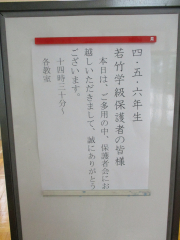 四・五・六年生
若竹学級保護者の皆様
本日は、ご多用の中、保護者会にお
越しいただきまして、誠にありがとう
ございます。
十四時三十分〜
各教室